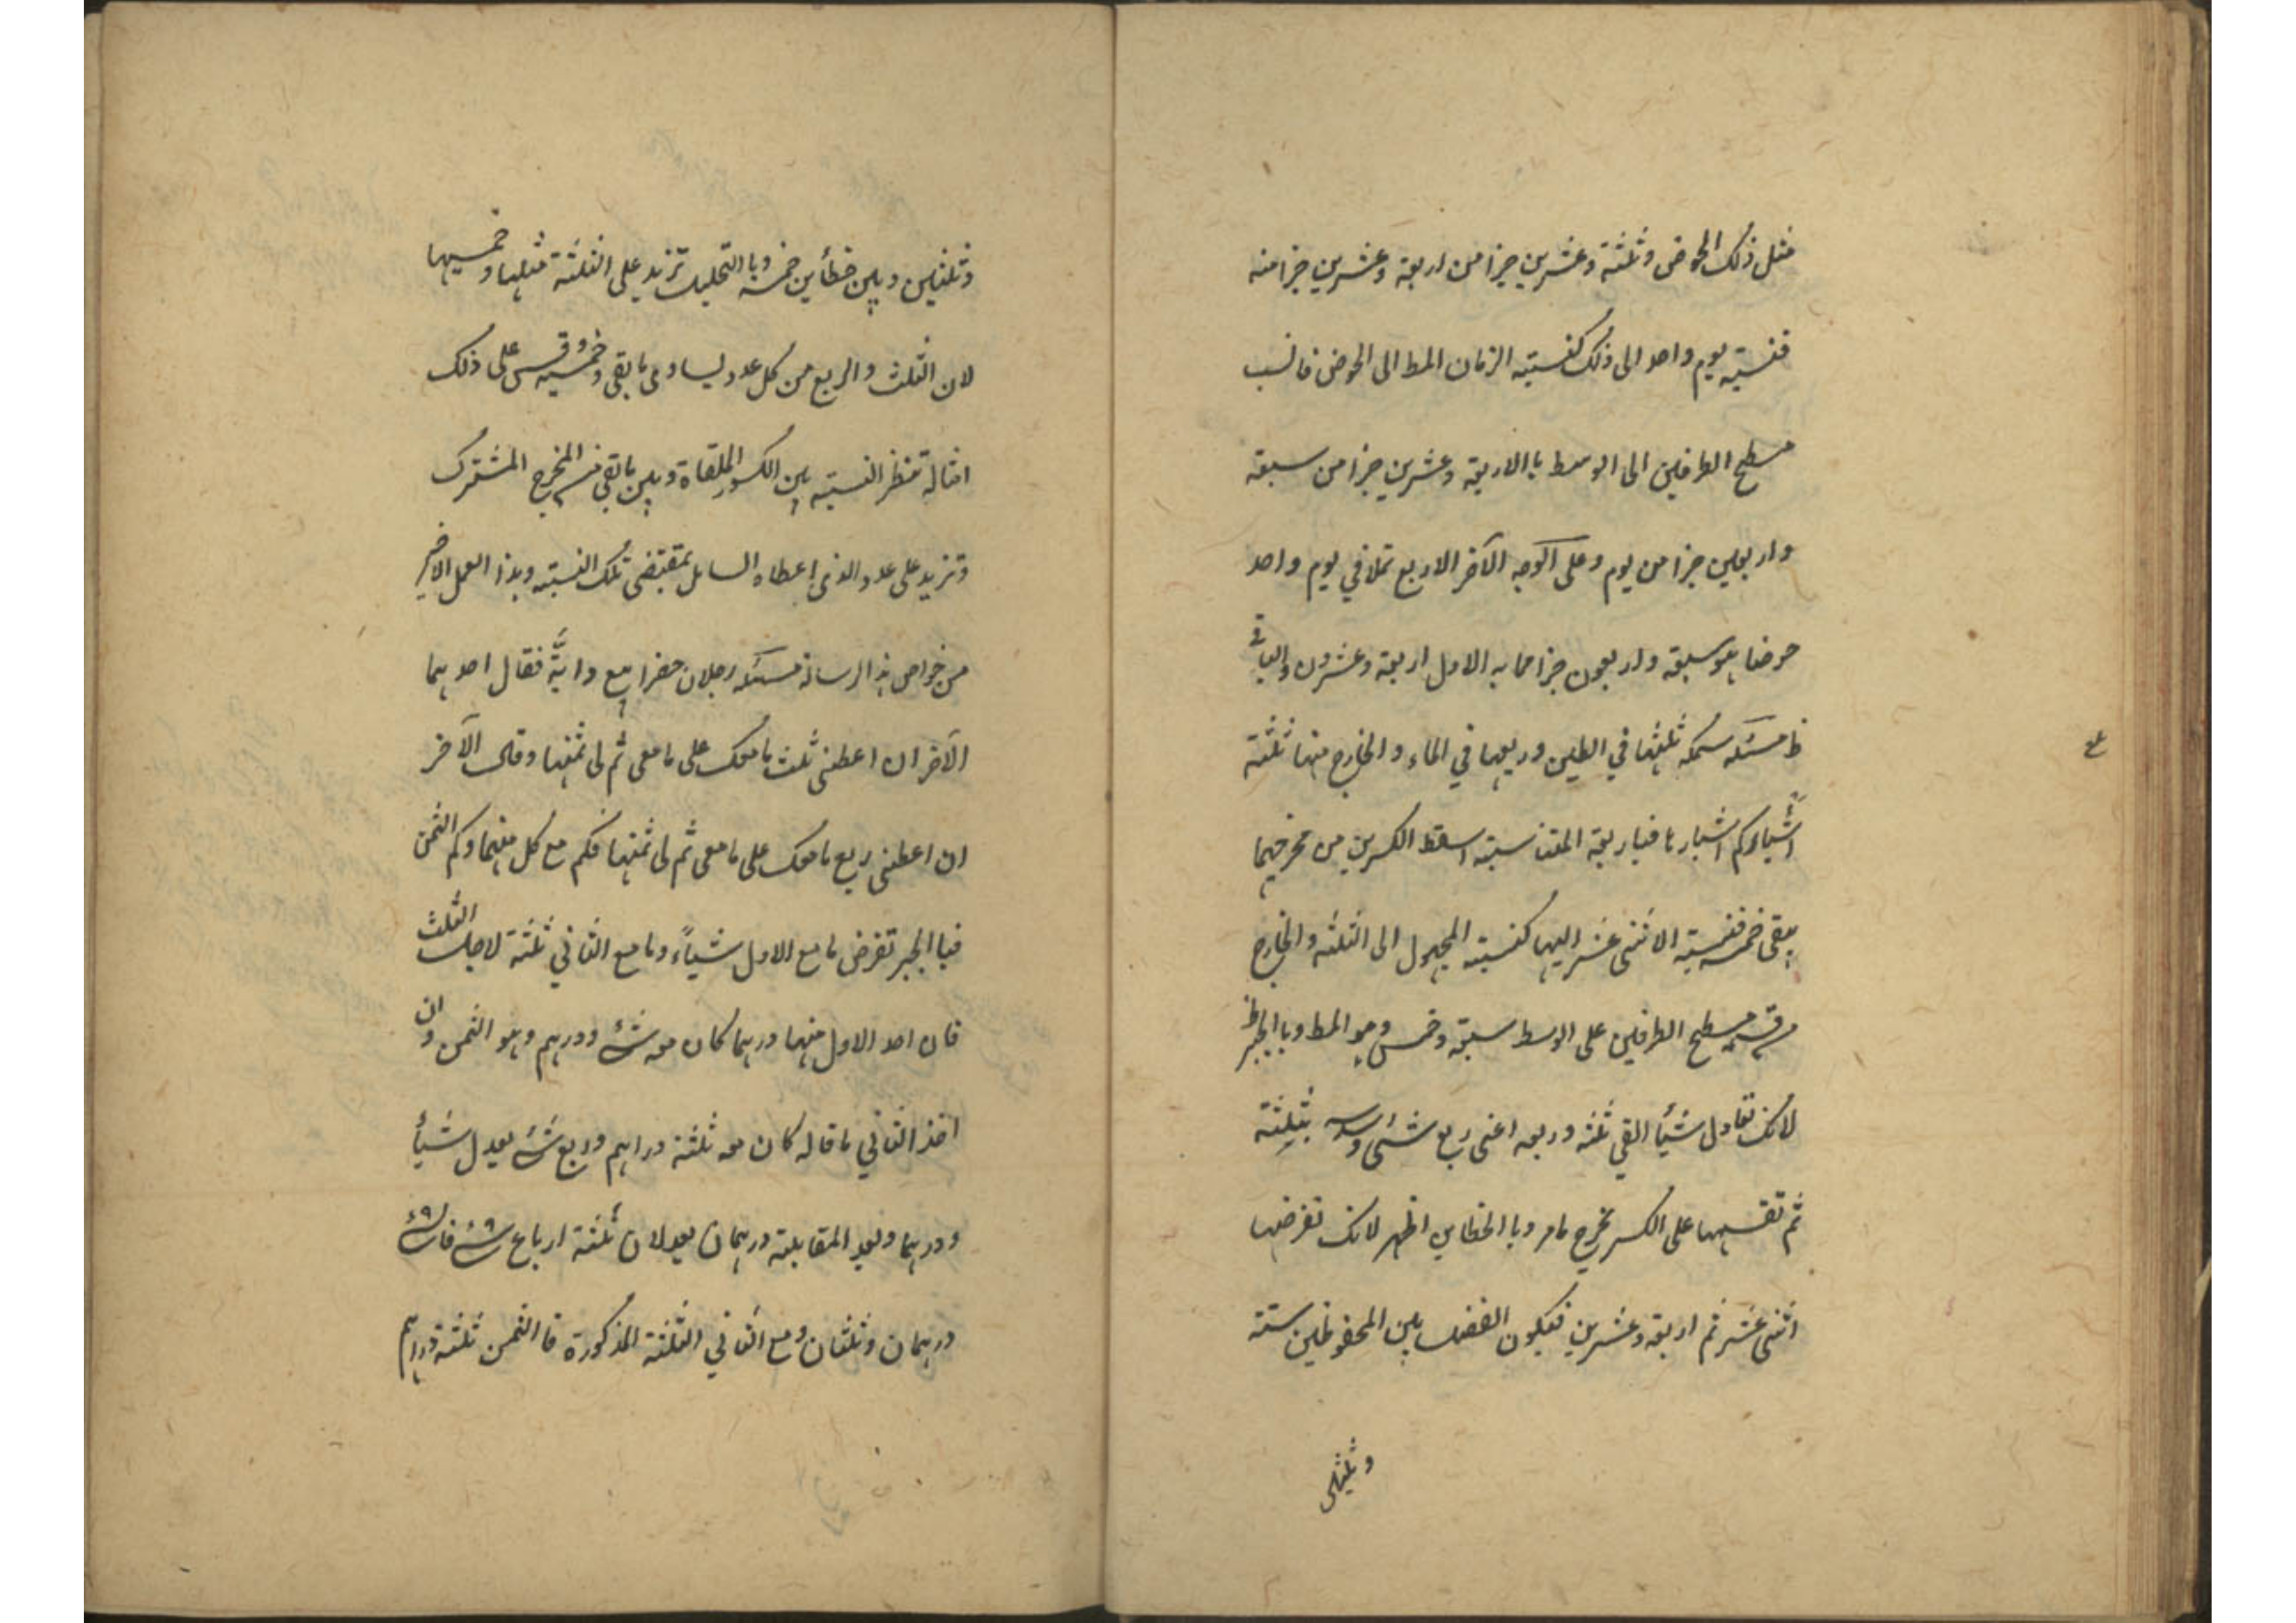 مثل ذلك الحوض وثلثة وعشرين جزا من اربعة وعشرين جزا منه
فنسبته يوم واحد الى ذلك كنسبته الزمان المط الى الحوض فانسب
مسطح الطرفين الى الوسط باالاربعة وعشرين جزا من سبعة
واربعين جزا من يوم وعلى الوجه الآخر الاربع تملا في يوم واحد
حوضا هو سبعة واربعون جزا مما به الاول اربعة وعشرون والباقى
ظ مسئله سمكه ثلثها في الطين وربعها في الماء والخارج منها ثلثة
اشبار وكم اشبارها فباربعة المتناسبته اسقط الكسرين من مخرجهما
يبقى خمسه فنسبته الاثنى عشر اليها كنسبته المجهول الى الثلثه والخارج
من قسمة مسطح الطرفين على الوسط سبعة وخمس وهو المط وباالجبر ظ
لانك تعادل شيأ القي ثلثه وربعه اعنى ربع شئ وسدسه بثلثة
ثم تقسمها على الكسر يخرج مامر وباالخطاين اظهر لانك تفرضها
اثنى عشر ثم اربعة وعشرين فيكون الفضل بين المحفوظين ستة
وثلثين
وثلثين وبين خطأين خمسة وباالتحليل تزيد على الثلثة مثلها وخمسيها
لان الثلث والربع من كل عدد يساوى مابقى وخمسيه وقس على ذلك
امثاله تنظر النسبته بين الكسور الملقاة وبين مابقى من المخرج المشترك
وتزيد على عدد الذى اعطاه السايل بمقتضى تلك النسبته وهذا العمل الاخير
من خواص هذا الرسالة مسئله رجلان حضرا بيع دابة فقال احدهما
الآخر ان اعطنى ثلث مامعك على مامعى ثم لى ثمنها وقال الآخر
ان اعطنى ربع مامعك على مامعى ثم لى ثمنها فكم مع كل منهما وكم الثمن
فباالجبر تفرض مامع الاول شياء ومامع الثاني ثلثة لاجل الثلث
فان اخذ الاول منها درهما كان معه شئ ودرهم وهو الثمن وان
اخذ الثاني ماقاله كان معه ثلثة دراهم وربع شئ يعدل شيأ
ودرهما وبعد المقابلته درهمان يعدلان ثلثة ارباع شئ فالشئ
درهمان وثلثان ومع الثاني الثلثة المذكورة فاالثمن ثلثة دراهم